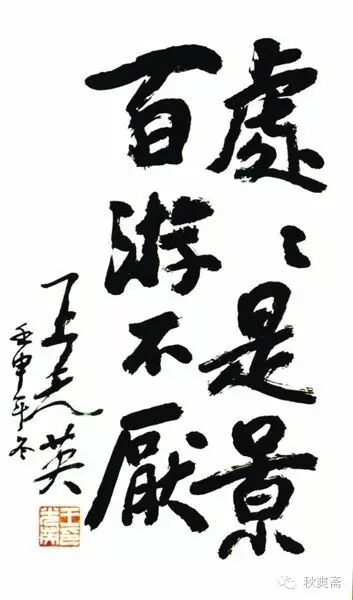 處〻是景
百游不厭
王光英
壬申年冬
秋爽斋